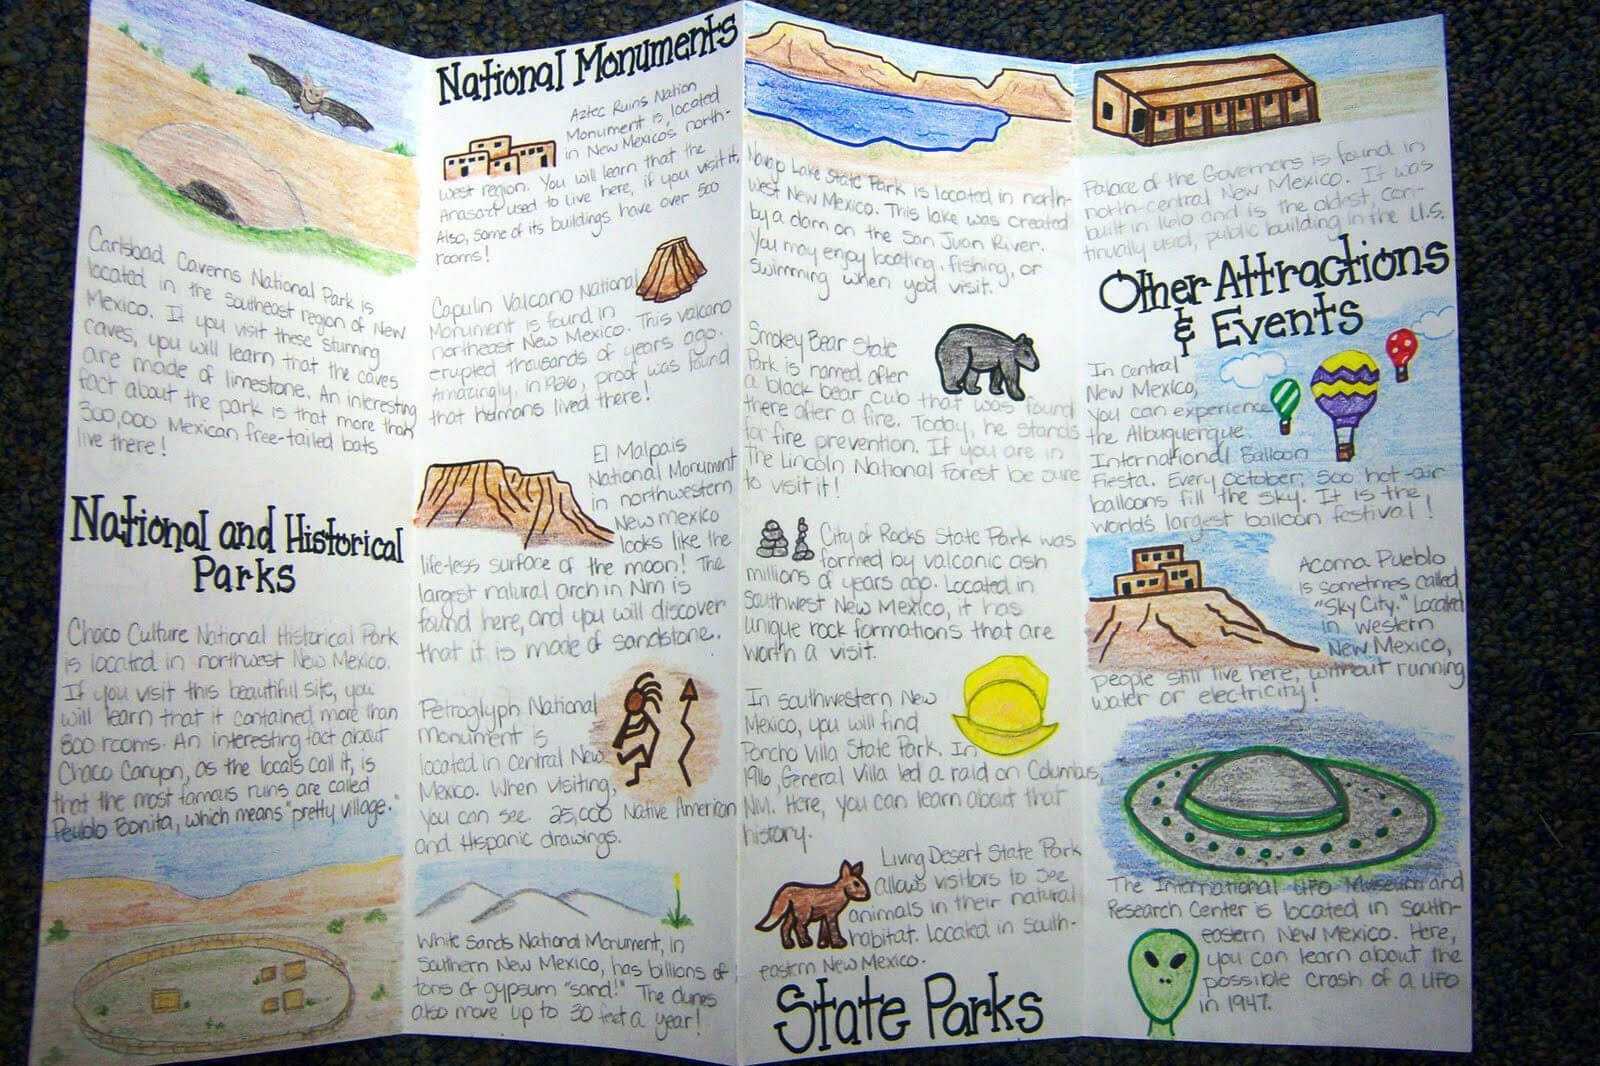 Carlsbad Caverns National Park is
located in the southeast region of New
Mexico. If you visit these stunning
caves, you will learn that the caves
are made of limestone. An interesting
fact about the park is that more than
300,000 Mexican free-tailed bats
live there!
National and Historical
Parks
Chaco Culture National Historical Park
is located in northwest New Mexico.
If you visit this beautiful site, you
will learn that it contained more than
800 rooms. An interesting fact about
Chaco Canyon, as the locals call it, is
that the most famous ruins are called
Peublo Bonita, which means "pretty village."
National Monuments
Aztec Ruins Nation
Monument is located
in New Mexico's north-
west region. You will learn that the
Anasazi used to live here, if you visit it.
Also, some of its buildings have over 500
rooms!
Capulin Valcano National
Monument is found in
northeast New Mexico. This valcano
erupted thousands of years ago.
Amazingly, in 1926, proof was found
that humans lived there!
El Malpais
National Monument
in northwestern
New Mexico
looks like the
life-less surface of the moon! The
largest natural arch in NM is
found here, and you will discover
that it is made of sandstone.
Petroglyph National
Monument is
located in central New
Mexico. When visiting,
you can see 25,000 Native American
and Hispanic drawings.
White Sands National Monument, in
Southern New Mexico, has billions of
tons of gypsum "sand!" The dunes
also move up to 30 feet a year!
Navajo Lake State Park is located in north-
west New Mexico. This lake was created
by a dam on the San Juan River.
You may enjoy boating, fishing, or
swimming when you visit.
Smokey Bear State
Park is named after
a black bear cub that was found
there after a fire. Today, he stands
for fire prevention. If you are in
The Lincoln National Forest be sure
to visit it!
City of Rocks State Park was
formed by valcanic ash
millions of years ago. Located in
southwest New Mexico, it has
unique rock formations that are
worth a visit.
In southwestern New
Mexico, you will find
Poncho Villa State Park. In
1916, General Villa led a raid on Columbus,
NM. Here, you can learn about that
history.
Living Desert State Park
allows visitors to see
animals in their natural
habitat. Located in south-
eastern New Mexico.
State Parks
Palace of the Governors is found in
north-central New Mexico. It was
built in 1610 and is the oldest, con-
tinually used, public building in the U.S.
Other Attractions
& Events
In central
New Mexico,
you can experience
the Albuquerque
International Balloon
Fiesta. Every October, 500 hot-air
balloons fill the sky. It is the
world's largest balloon festival!
Acoma Pueblo
is sometimes called
"Sky City." Located
in western
New Mexico,
people still live here, without running
water or electricity!
The International UFO Museum and
Research Center is located in South-
eastern New Mexico. Here,
you can learn about the
possible crash of a UFO
in 1947.